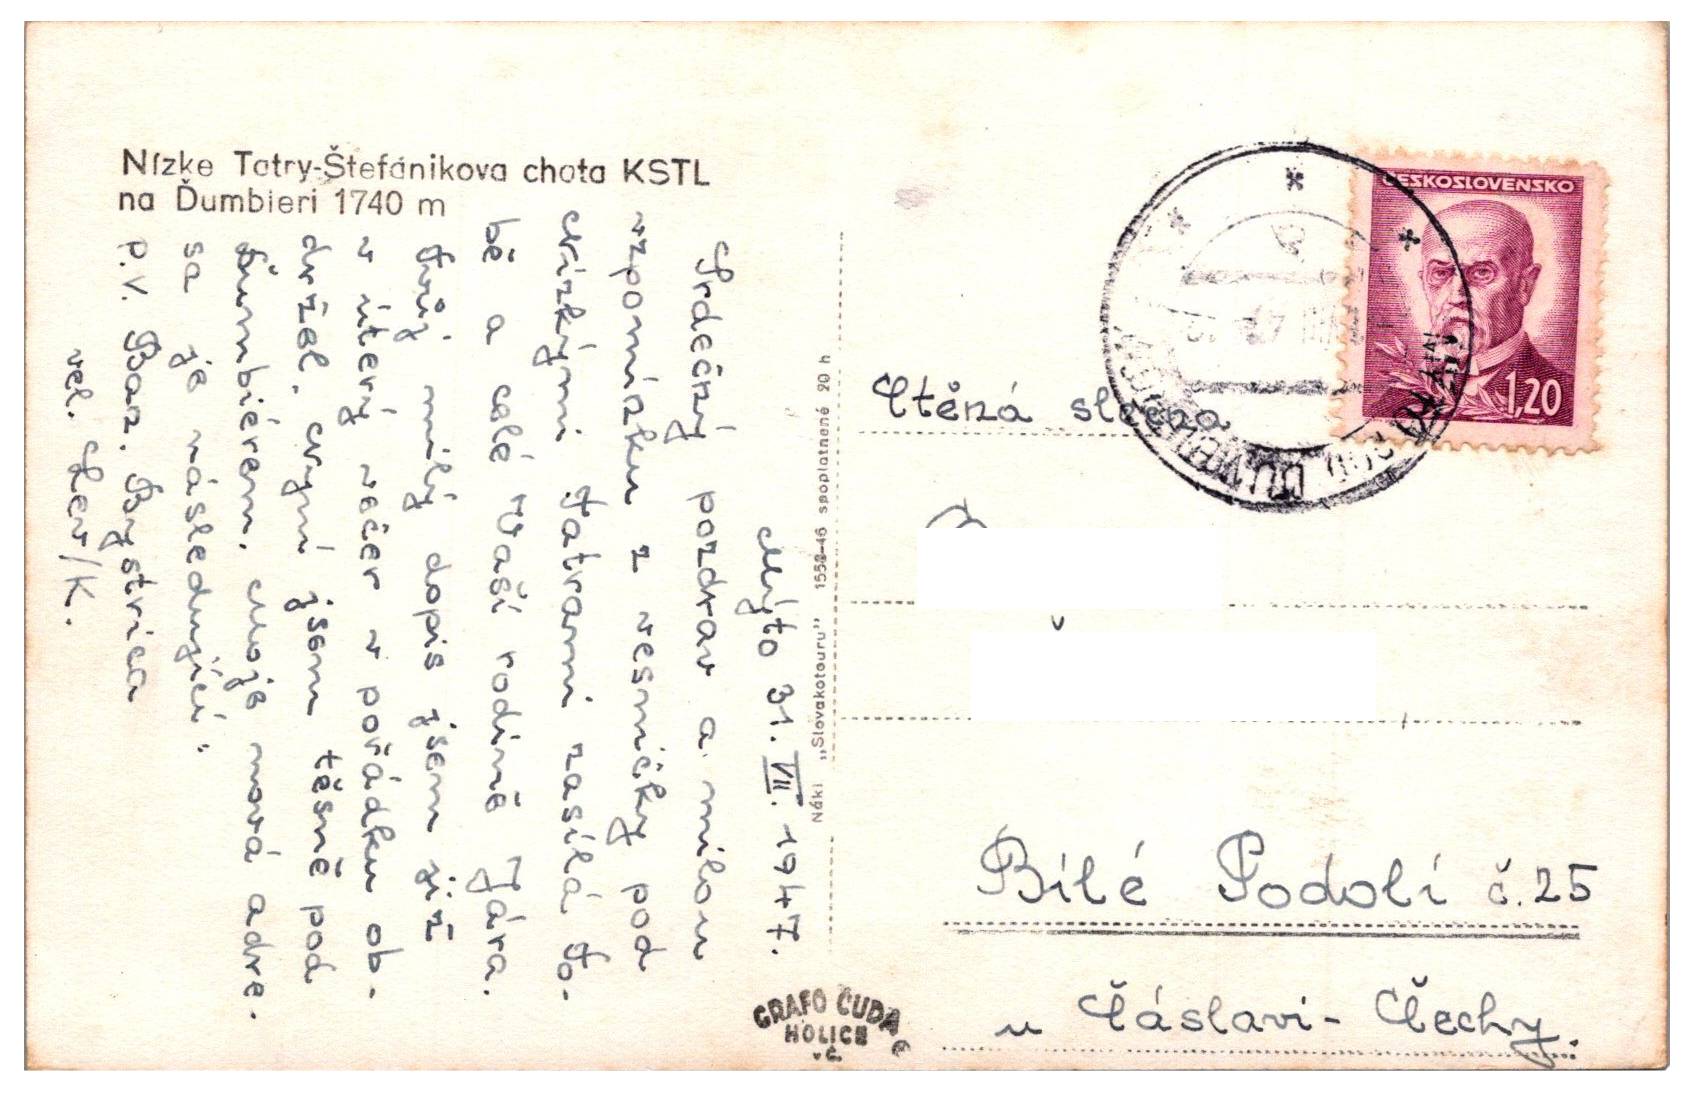 Nízke Tatry-Štefánikova chata KSTL
na Ďumbieri 1740 m
Mýto 31. VII. 1947.
Srdečný pozdrav a milou
vzpomínku z vesničky pod
Nízkými Tatrami zasílá To-
bě a celé Vaší rodině Jára.
Tvůj milý dopis jsem již
v úterý večer v pořádku ob-
držel, nyní jsem těsně pod
Ďumbiérem. Moje nová adre-
sa je následující:
p.v. Ban. Bystrica
vel.
Náki „Slovakotouru" 1558-46 spoplatnené 20 h
ČESKOSLOVENSKO
1,20
Ctěná slečna
Bílé Podolí č.25
u Čáslavi - Čechy.
GRAFO ČUDA
HOLICE
v Č.